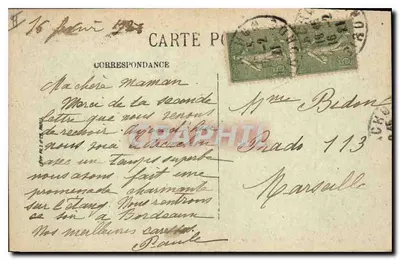 16 février
CARTE PO
CORRESPONDANCE
Ma chère maman
Merci de la seconde
lettre que nous venons
de recevoir
nous
avec un temps superbe
nous avons fait une
promenade charmante
sur l'étang Nous rentrons
ce soir à Bordeaux
Nos meilleures caresses
Paule
Mme Bedon
Prado 113
Marseille